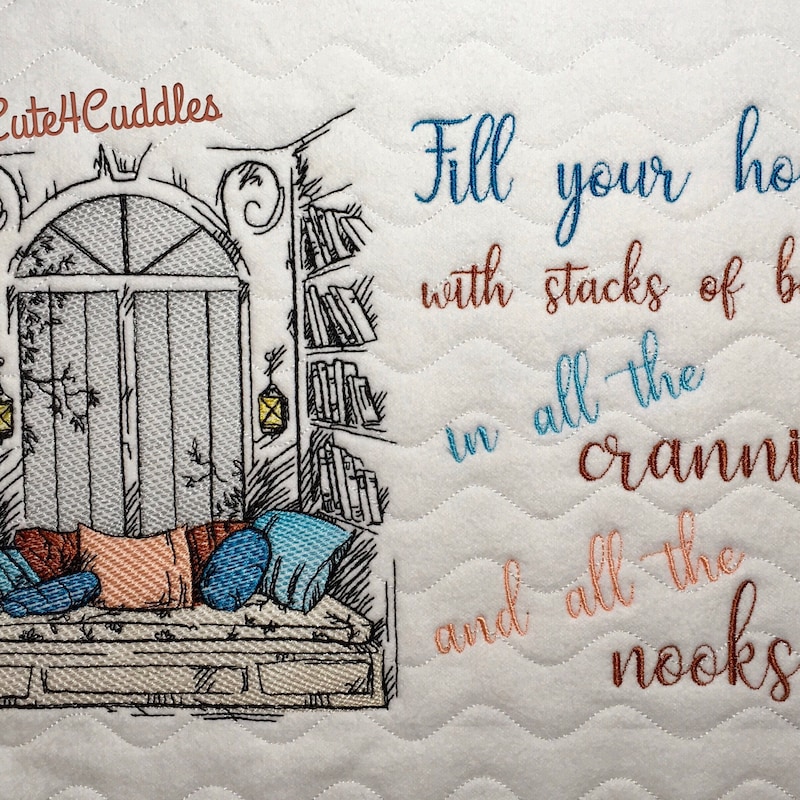 Cute4Cuddles
Fill your ho
with stacks of b
in all the
cranni
and all the
nooks